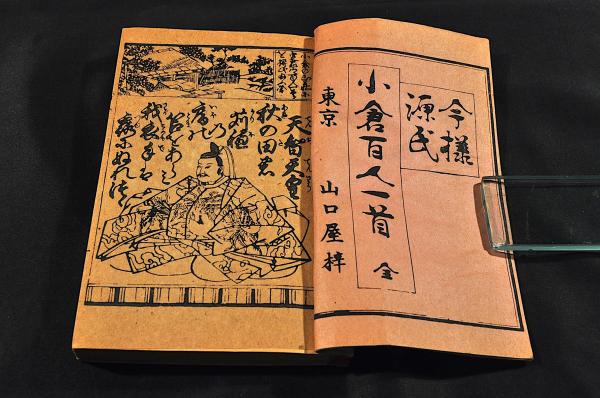 今様
源氏
小倉百人一首 全
東京 山口屋梓
天智天皇
秋の田の
苅穂
の
庵の
苫をあらみ
我衣手は
露にぬれつゝ